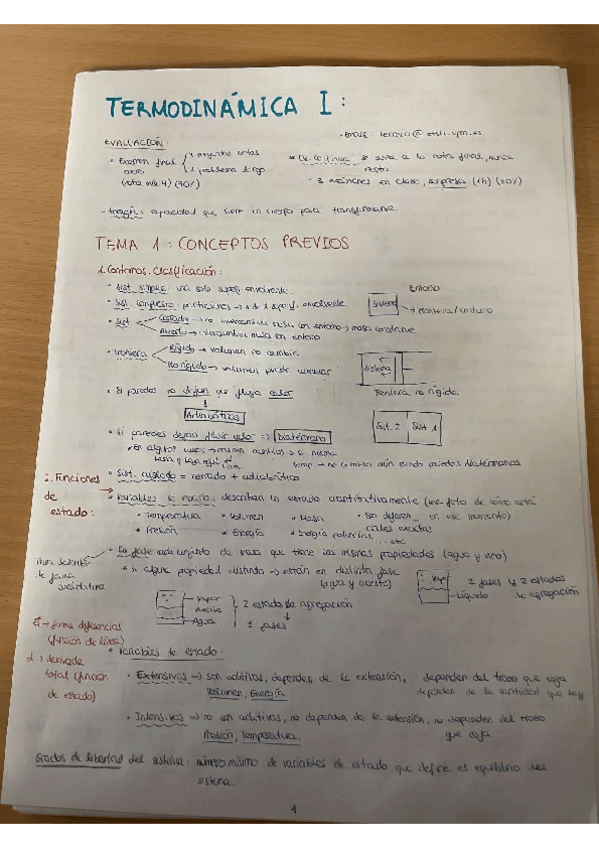 TERMODINÁMICA I:
EVALUACIÓN:
Examen final
(nota mín 4) (70%)
1 problema largo
Ev. Continua: suma a la nota final, nunca
resta
3 exámenes en clase, sorpresa (1h) (30%)
- Energía: capacidad que tiene un cuerpo para transformarse.
TEMA 1: CONCEPTOS PREVIOS
1. Contornos. Clasificación:
• Sist. simple: una sola superf. envolvente.
• Sist. complejo: particiones → + d 1 superf. envolvente
• Sist
Cerrado → no intercambia masa con entorno → masa constante
Abierto → intercambia masa con entorno
Entorno
Sistema
→ Frontera/contorno
• Frontera
Rígida → volumen no cambia
No rígida → volumen puede cambiar
Sistema
Frontera no rígida
• Si paredes no dejan que fluya calor
Adiabáticas
Sist. 2 Sist 1
• Si paredes dejan fluir calor → Diatérmano
temp → no cambia aún siendo paredes diatérmanas
• Sist. aislado = cerrado + adiabático
2. Funciones
de
estado:
• Variables de estado: describen un estado cuantitativamente (una foto de cómo está
en ese momento)
• Temperatura • Volumen • Masa
• Presión • Energía • Energía potencial
... etc
• En fase cada conjunto de masa que tiene las mismas propiedades (agua y vino)
• Si alguna propiedad distinta → están en distinta fase
(agua y aceite)
Vapor
Aceite
Agua
2 estados de agregación
3 fases
Vapor
Líquido
2 fases y 2 estados
de agregación
δ → forma diferencial
(función de línea)
d → derivada
total (función
de estado)
• Variables de estado:
• Extensivas → son aditivas, dependen de la extensión, dependen del trozo que coja
Volumen, Energía dependen de la cantidad que hay
• Intensivas → no son aditivas, no dependen de la extensión, no dependen del trozo
Presión, temperatura. que coja
Grados de libertad del sistema: número mínimo de variables de estado que define el equilibrio del
sistema.
1